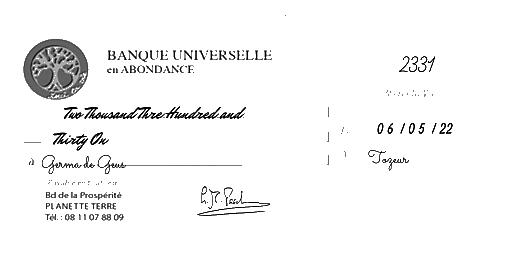 BANQUE UNIVERSELLE
en ABONDANCE
2331
Two Thousand Three Hundred and
Thirty On
06/05/22
à Germa de Geus
Tozeur
Bd de la Prospérité
PLANETTE TERRE
Tél. : 08 11 07 88 09